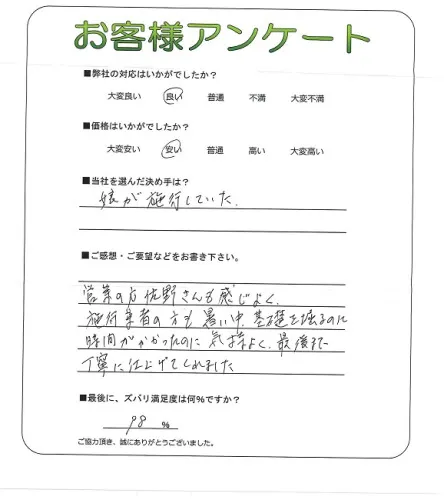 お客様アンケート
■弊社の対応はいかがでしたか?
大変良い 良い 普通 不満 大変不満
■価格はいかがでしたか?
大変安い 安い 普通 高い 大変高い
■当社を選んだ決め手は?
娘が施行していた.
■ご感想・ご要望などをお書き下さい。
営業の方佐野さんも感じよく、
施行業者の方も暑い中、基礎を掘るのに
時間がかかったのに気持よく、最後まで
丁寧に仕上げてくれました
■最後に、ズバリ満足度は何%ですか?
98 %
ご協力頂き、誠にありがとうございました。